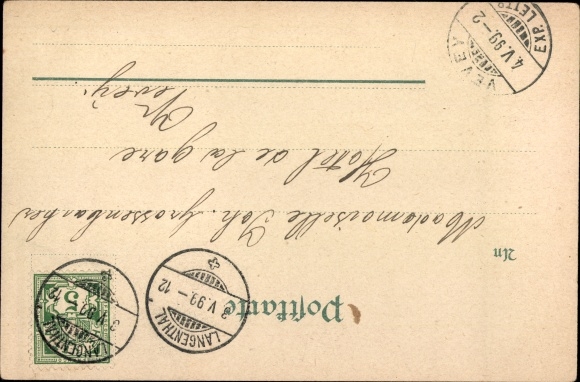 Postkarte
An
Mademoiselle Joh. Grossenbacher
Hotel de la gare
Vevey.
LANGENTHAL
3 V.99.-12
LANGENTHAL
3 V.99.-12
5
VEVEY
4.V.99.-2
EXP. LETTR.